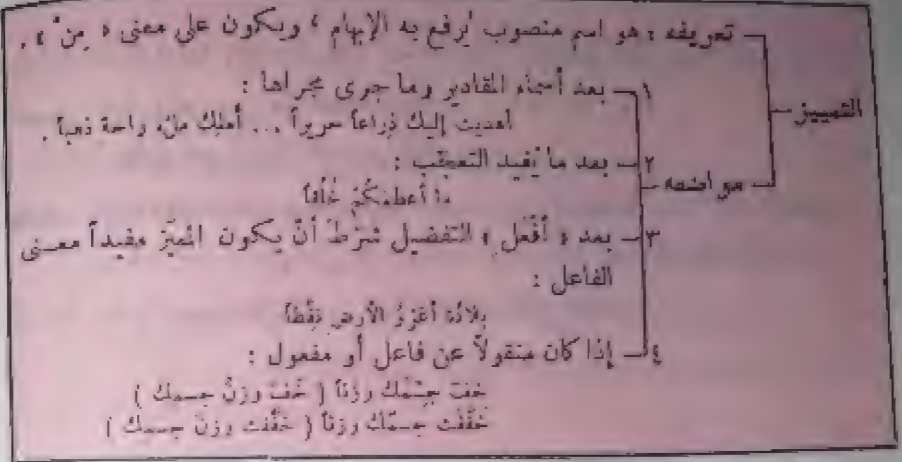 تعريفه : هو اسم منصوب يُرفع به الإبهام ، ويكون على معنى « مِن » .
التمييز
١ – بعد أسماء المقادير وما جرى مجراها :
أهديت إليك ذِراعاً حريراً ... أملِك ملء راحة ذهباً .
مواضعه
٢ – بعد ما يُفيد التعجّب :
ما أعظمَكُم خُلُقاً
٣ – بعد « أفْعَل » التفضيل شرْطَ أنْ يكون المميّز مفيداً معـنى
الفاعل :
بِلادُنا أغزَرُ الأرضِ نِفْطاً
٤ – إذا كان منقولاً عن فاعل أو مفعول :
خفّ جِسْمُك وزناً ( خَفّ وزنُ جسمك )
خَفّفْت جسمَك وزناً ( خفّفت وزنَ جسمك )